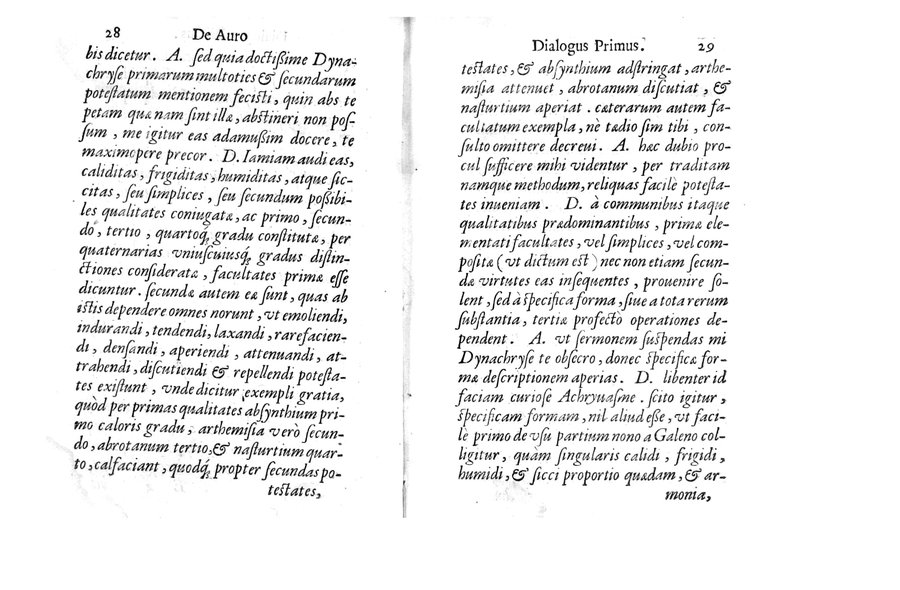 28 De Auro
bis dicetur. A. ſed quia doctißime Dyna-
chryſe primarum multoties & ſecundarum
poteſtatum mentionem feciſti, quin abs te
petam quæ nam ſint illæ, abſtineri non poſ-
ſum, me igitur eas adamußim docere, te
maximopere precor. D. Iamiam audi eas,
caliditas, frigiditas, humiditas, atque ſic-
citas, ſeu ſimplices, ſeu ſecundum poßibi-
les qualitates coniugatæ, ac primo, ſecun-
do, tertio, quartoq́; gradu conſtitutæ, per
quaternarias vniuſcuiusq́; gradus diſtin-
ctiones conſideratæ, facultates primæ eſſe
dicuntur. ſecundæ autem eæ ſunt, quas ab
iſtis dependere omnes norunt, vt emoliendi,
indurandi, tendendi, laxandi, rarefacien-
di, denſandi, aperiendi, attenuandi, at-
trahendi, diſcutiendi & repellendi poteſta-
tes exiſtunt, vnde dicitur exempli gratia,
quòd per primas qualitates abſynthium pri-
mo caloris gradu, arthemiſia verò ſecun-
do, abrotanum tertio, & naſturtium quar-
to, calfaciant, quodq́; propter ſecundas po-
teſtates,
Dialogus Primus. 29
teſtates, & abſynthium adſtringat, arthe-
miſia attenuet, abrotanum diſcutiat, &
naſturtium aperiat. cæterarum autem fa-
cultatum exempla, nè tædio ſim tibi, con-
ſulto omittere decreui. A. hæc dubio pro-
cul ſufficere mihi videntur, per traditam
namque methodum, reliquas facilè poteſta-
tes inueniam. D. à communibus itaque
qualitatibus prædominantibus, primæ ele-
mentati facultates, vel ſimplices, vel com-
poſitæ (vt dictum eſt) nec non etiam ſecun-
dæ virtutes eas inſequentes, prouenire ſo-
lent, ſed à ſpecifica forma, ſiue a tota rerum
ſubſtantia, tertiæ profectò operationes de-
pendent. A. vt ſermonem ſuſpendas mi
Dynachryſe te obſecro, donec ſpecificæ for-
mæ deſcriptionem aperias. D. libenter id
faciam curioſe Achryuaſme. ſcito igitur,
ſpecificam formam, nil aliud eſſe, vt faci-
lè primo de vſu partium nono a Galeno col-
ligitur, quàm ſingularis calidi, frigidi,
humidi, & ſicci proportio quædam, & ar-
monia,